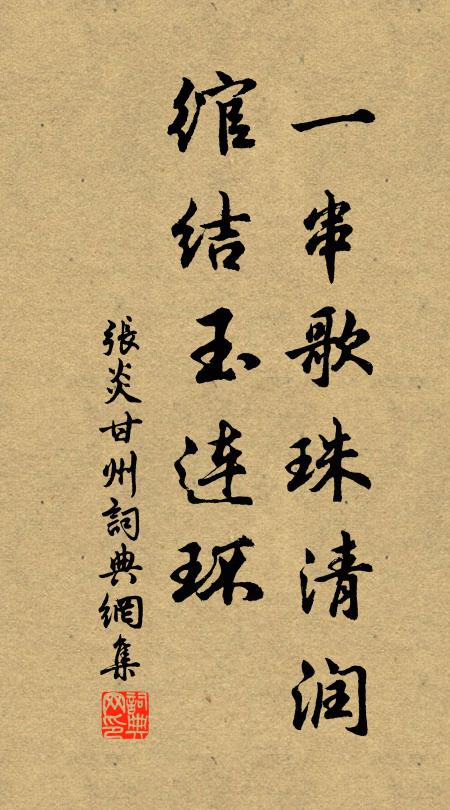 一串歌珠清润
绾结玉连环
張炎甘州詞典網集
詞典网印